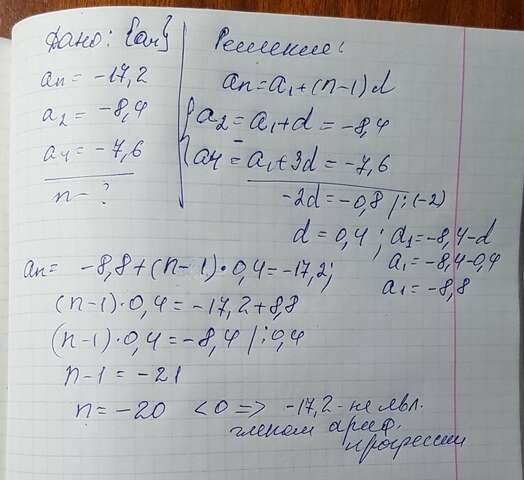 Дано: {an}
an = -17,2
a2 = -8,4
a4 = -7,6
n - ?
Решение:
an = a1 + (n-1) d
{a2 = a1 + d = -8,4
{a4 = a1 + 3d = -7,6
-2d = -0,8 /:(-2)
d = 0,4 ; a1 = -8,4 - d
a1 = -8,4 - 0,4
a1 = -8,8
an = -8,8 + (n-1) · 0,4 = -17,2;
(n-1) · 0,4 = -17,2 + 8,8
(n-1) · 0,4 = -8,4 /:0,4
n-1 = -21
n = -20 < 0 => -17,2 - не явл.
членом ариф.
прогрессии